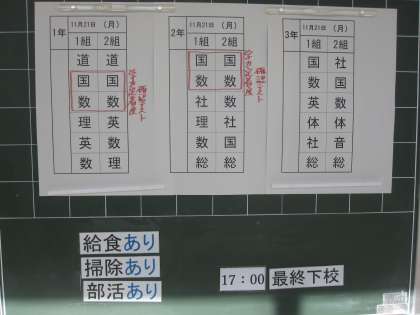 1年
11月21日 (月)
1組 2組
道 道
国 国
数 数
理 英
英 数
数 理
確認テスト
2年
11月21日 (月)
1組 2組
国 国
数 数
社 社
理 数
数 国
総 総
確認テスト
3年
11月21日 (月)
1組 2組
国 社
数 国
英 数
体 体
社 音
総 総
給食あり
掃除あり
部活あり
17:00 最終下校